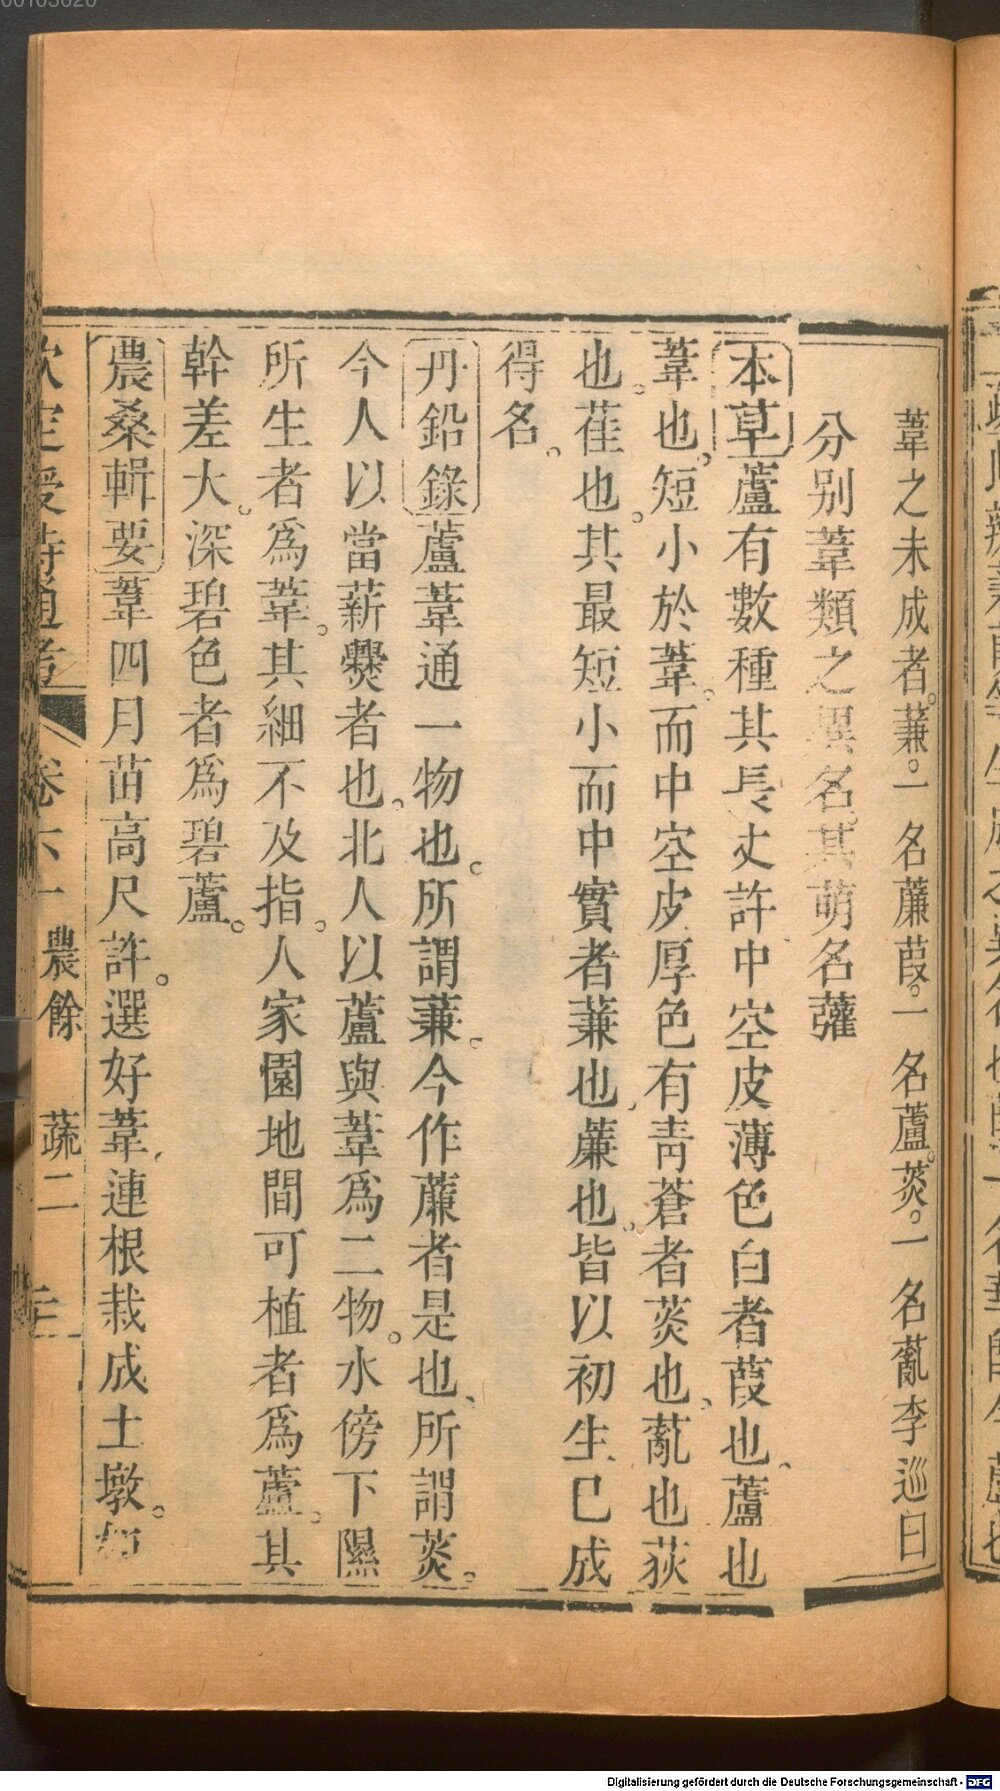 葦之未成者。蒹。一名薕葭。一名蘆。菼。一名薍李巡曰
分别葦類之異名。其萌名虇
本草蘆有數種其長丈許中空皮薄色白者葭也、蘆也
葦也。短小於葦。而中空皮厚色有青蒼者菼也、薍也荻
也。萑也。其最短小而中實者蒹也、薕也。皆以初生已成
得名。
丹鉛錄蘆葦通一物也。所謂蒹。今作薕者是也、所謂菼。
今人以當薪爨者也。北人以蘆與葦爲二物。水傍下隰
所生者爲葦。其細不及指。人家園地間可植者爲蘆。其
幹差大。深碧色者爲碧蘆。
農桑輯要葦四月苗高尺許。選好葦、連根栽成土墩。如
欽定授時通考 卷六十一 農餘 蔬二
Digitalisierung gefördert durch die Deutsche Forschungsgemeinschaft - DFG